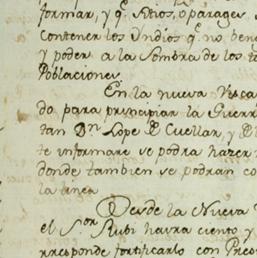 formar, y q.e Sitios, o parages
contener los Yndios q.e no
y poder a la Sombra de los
Poblaciones.
En la nueva Visca
do para principiar la Guerr
tan D.n Lope D. Cuellar, y D.
te informare se podra hacer
donde tambien se podran co
la linea
Desde la Nueva
el S.or Rubi havra ciento y
rresponde fortificarlo con Pres